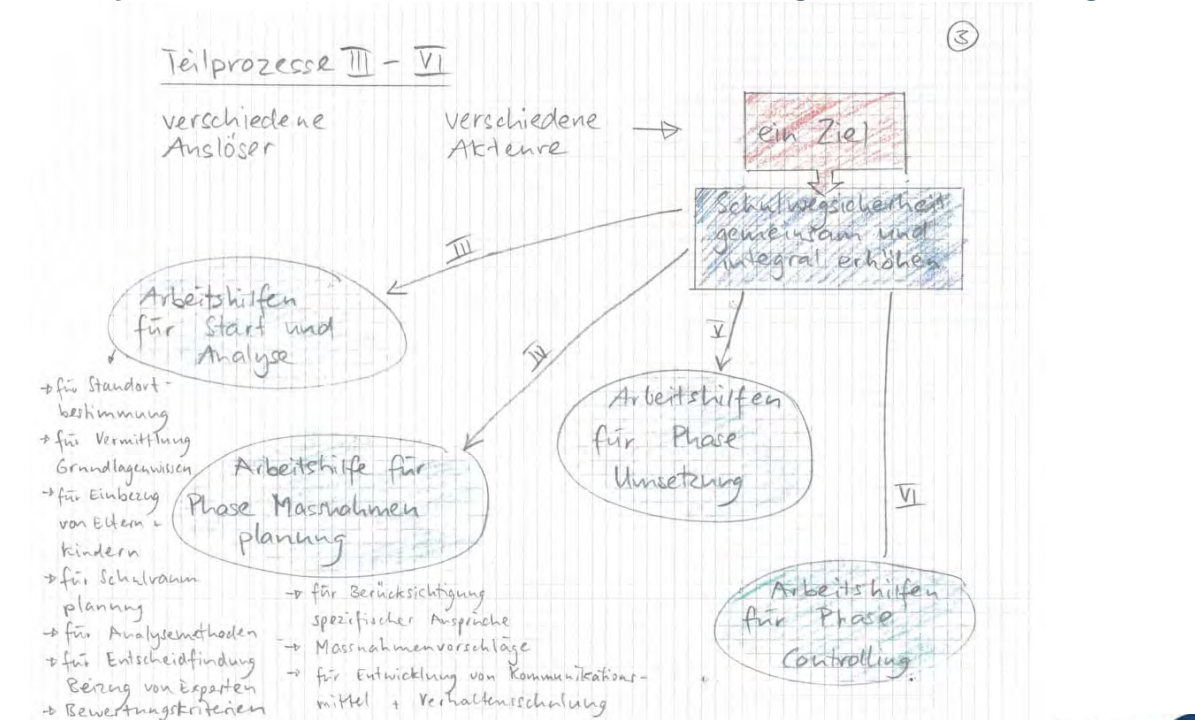 ③
Teilprozesse III - VI
verschiedene
Auslöser
verschiedene
Akteure
ein Ziel
Schulwegsicherheit
gemeinsam und
integral erhöhen
III
IV
V
VI
Arbeitshilfen
für Start und
Analyse
→ für Standort-
bestimmung
→ für Vermittlung
Grundlagenwissen
→ für Einbezug
von Eltern +
Kindern
→ für Schulraum
planung
→ für Analysemethoden
→ für Entscheidfindung
Beizug von Experten
→ Bewertungskriterien
Arbeitshilfe für
Phase Massnahmen
planung
→ für Berücksichtigung
spezifischer Ansprüche
→ Massnahmenvorschläge
→ für Entwicklung von Kommunikations-
mittel + Verhaltensschulung
Arbeitshilfen
für Phase
Umsetzung
Arbeitshilfen
für Phase
Controlling